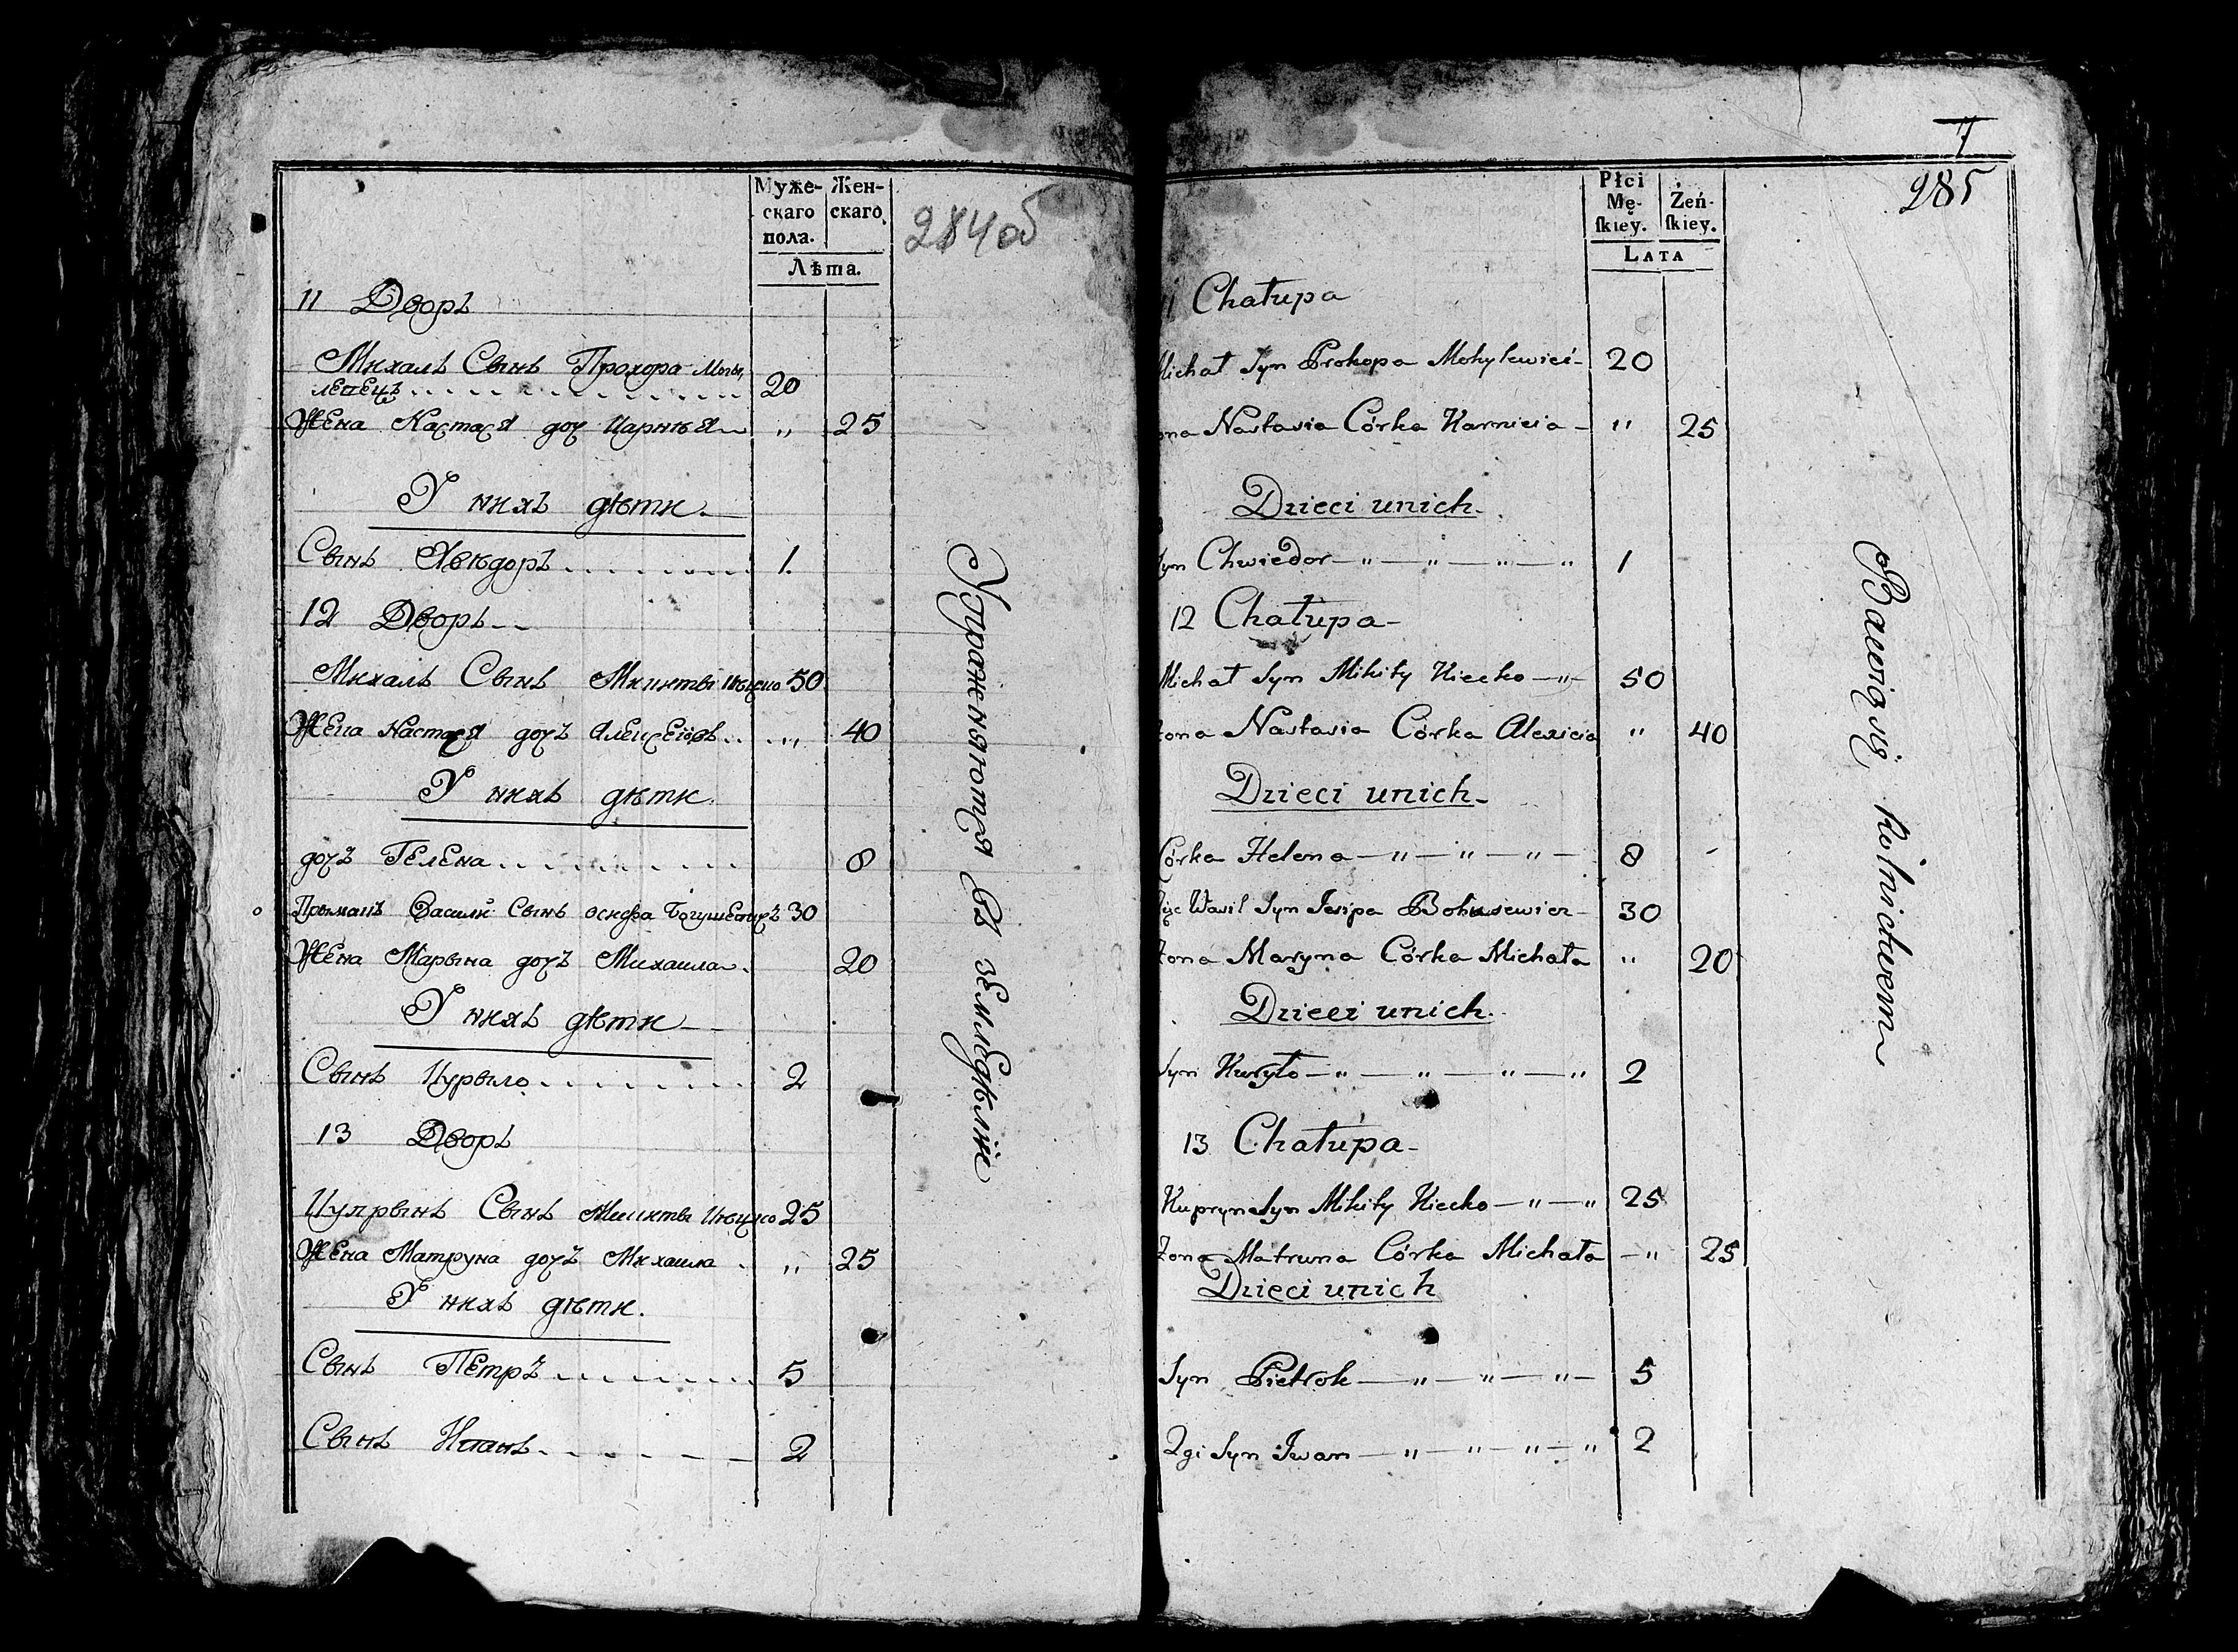 Муже-
скаго
пола.
Жен-
скаго
Лѣта.
284об
11 Дворъ
Михалъ Сынъ Прохора Моги,
левецъ 20
Жена Настася доч Карнѣя „ 25
У нихъ дѣти
Сынъ Хвѣдоръ 1.
12 Дворъ
Михалъ Сынъ Микиты Кѣцко 50
Жена Настася дочъ Алексеіовъ „ 40
У нихъ дѣти.
дочъ Гелена 8
Прыманъ Василій Сынъ Осифа Богушевичъ 30
Жена Марына дочъ Михаила 20
У нихъ дѣти
Сынъ Курыло 2
13 Дворъ
Купрынъ Сынъ Микиты Кѣцко 25
Жена Матруна дочъ Михаила „ 25
У нихъ дѣти.
Сынъ Петръ 5
Сынъ Иванъ 2
Упражняются въ земледѣліи
7
285
Płci
Mę-
ſkiey.
Żeń-
ſkiey.
LATA
11 Chałupa
Michał Syn Prokopa Mohylewieć 20
ona Nastasia Córka Karnieia „ 25
Dzieci unich
Syn Chwiedor „ „ „ „ 1
12 Chałupa
Michał Syn Mikity Kiecko „ 50
żona Nastasia Córka Alexieia „ 40
Dzieci unich
Córka Helena „ „ „ 8
Wasil Syn Jesipa Bohusewicz 30
żona Maryna Córka Michała „ 20
Dzieci unich.
Syn Kuryło „ „ „ „ 2
13 Chałupa
Kupryn Syn Mikity Kiecko „ „ 25
żona Matruna Córka Michała „ 25
Dzieci unich
Syn Pietrok „ „ „ 5
2gi Syn Iwan „ „ „ „ 2
Bawią się Rolnictwem